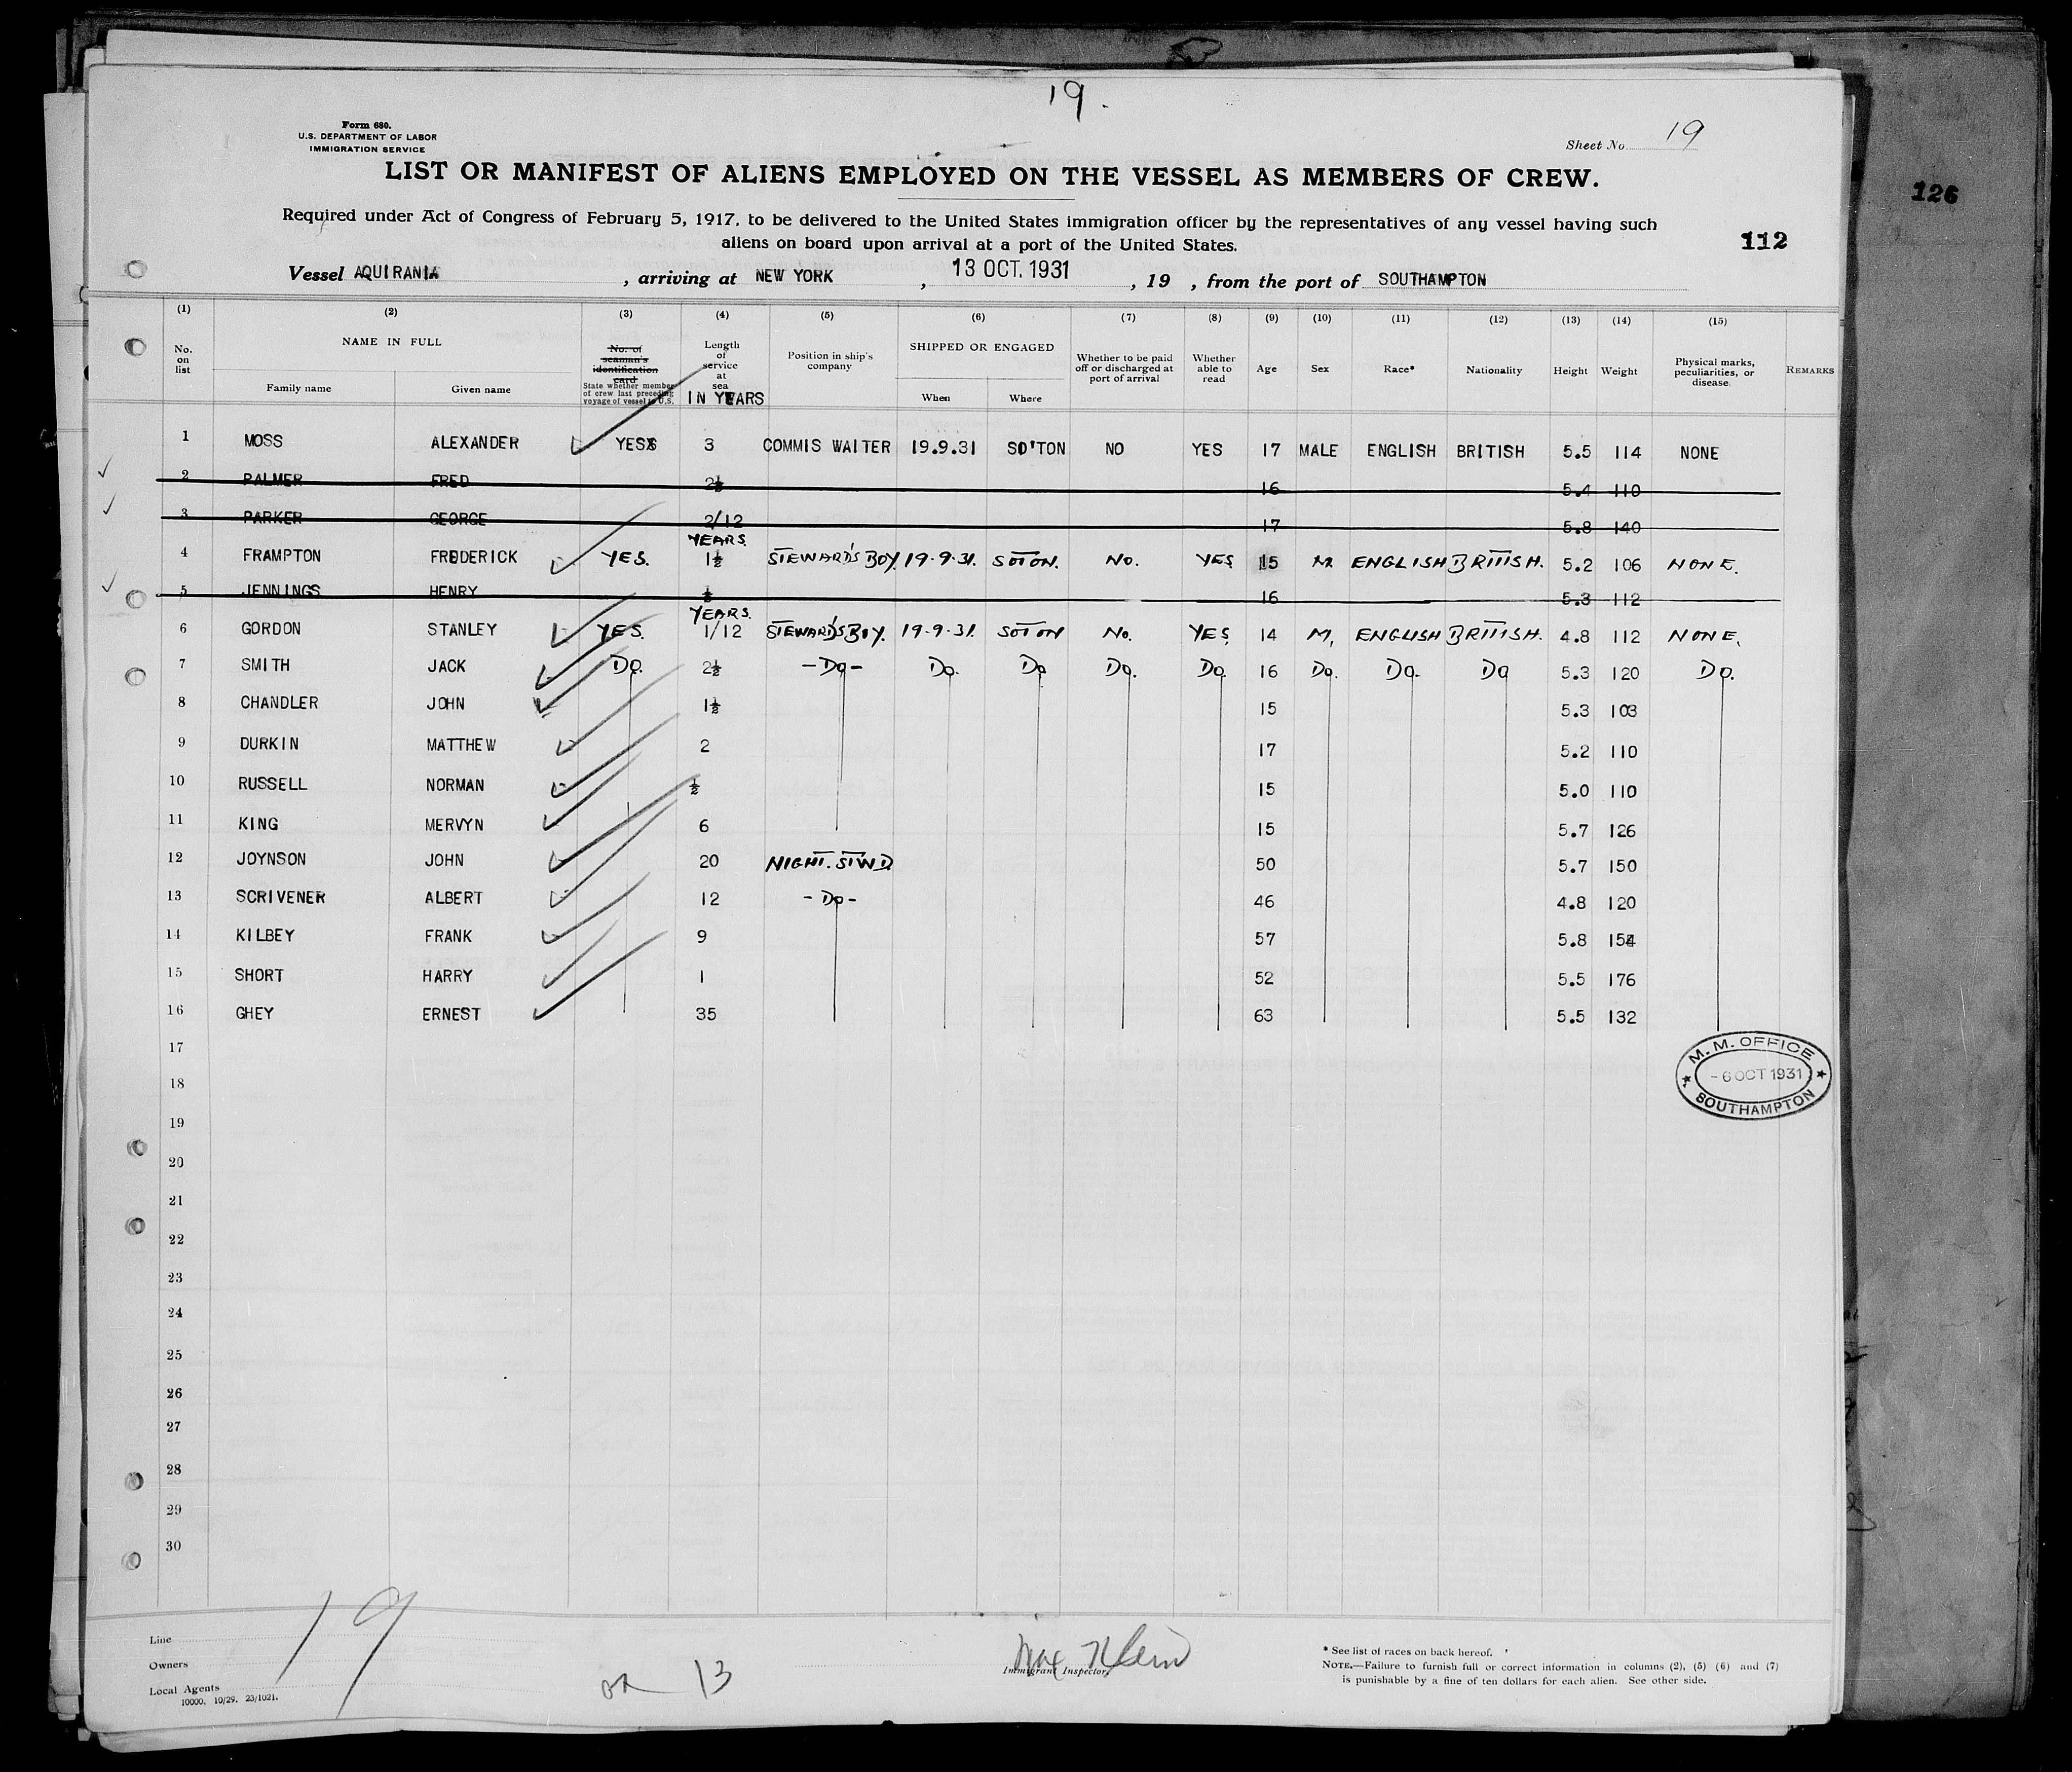 19.
Form 680.
U.S. DEPARTMENT OF LABOR
IMMIGRATION SERVICE
Sheet No. 19
LIST OR MANIFEST OF ALIENS EMPLOYED ON THE VESSEL AS MEMBERS OF CREW.
126
Required under Act of Congress of February 5, 1917, to be delivered to the United States immigration officer by the representatives of any vessel having such
aliens on board upon arrival at a port of the United States.
112
Vessel AQUIRANIA , arriving at NEW YORK , 13 OCT. 1931 , 19 , from the port of SOUTHAMPTON
(1) (2) (3) (4) (5) (6) (7) (8) (9) (10) (11) (12) (13) (14) (15)
No. on list NAME IN FULL Family name Given name No. of seaman's identification card State whether member of crew last preceding voyage of vessel to U.S. Length of service at sea IN YEARS Position in ship's company SHIPPED OR ENGAGED When Where Whether to be paid off or discharged at port of arrival Whether able to read Age Sex Race* Nationality Height Weight Physical marks, peculiarities, or disease. REMARKS
1 MOSS ALEXANDER YES 3 COMMIS WAITER 19.9.31 SO'TON NO YES 17 MALE ENGLISH BRITISH 5.5 114 NONE
2 PALMER FRED 2½ 16 5.4 110
3 PARKER GEORGE 2/12 17 5.8 140
4 FRAMPTON FREDERICK YES. YEARS. 1½ STEWARD'S BOY. 19-9-31. SOTON. No. YES 15 M ENGLISH BRITISH. 5.2 106 NONE.
5 JENNINGS HENRY ½ 16 5.3 112
6 GORDON STANLEY YES. YEARS. 1/12 STEWARD'S BOY. 19-9-31. SOTON No. YES 14 M, ENGLISH BRITISH. 4.8 112 NONE.
7 SMITH JACK Do. 2½ -Do- Do. Do Do. Do. 16 Do. Do. Do 5.3 120 Do.
8 CHANDLER JOHN 1½ 15 5.3 103
9 DURKIN MATTHEW 2 17 5.2 110
10 RUSSELL NORMAN ½ 15 5.0 110
11 KING MERVYN 6 15 5.7 126
12 JOYNSON JOHN 20 NIGHT. STWD 50 5.7 150
13 SCRIVENER ALBERT 12 -Do- 46 4.8 120
14 KILBEY FRANK 9 57 5.8 154
15 SHORT HARRY 1 52 5.5 176
16 GHEY ERNEST 35 63 5.5 132
17
M.M. OFFICE
-6 OCT 1931
SOUTHAMPTON
18
19
20
21
22
23
24
25
26
27
28
29
30
19
Line
Owners
Local Agents
10000. 10/29. 23/1021.
13
Max Klein
Immigrant Inspector.
* See list of races on back hereof.
NOTE.—Failure to furnish full or correct information in columns (2), (5) (6) and (7)
is punishable by a fine of ten dollars for each alien. See other side.